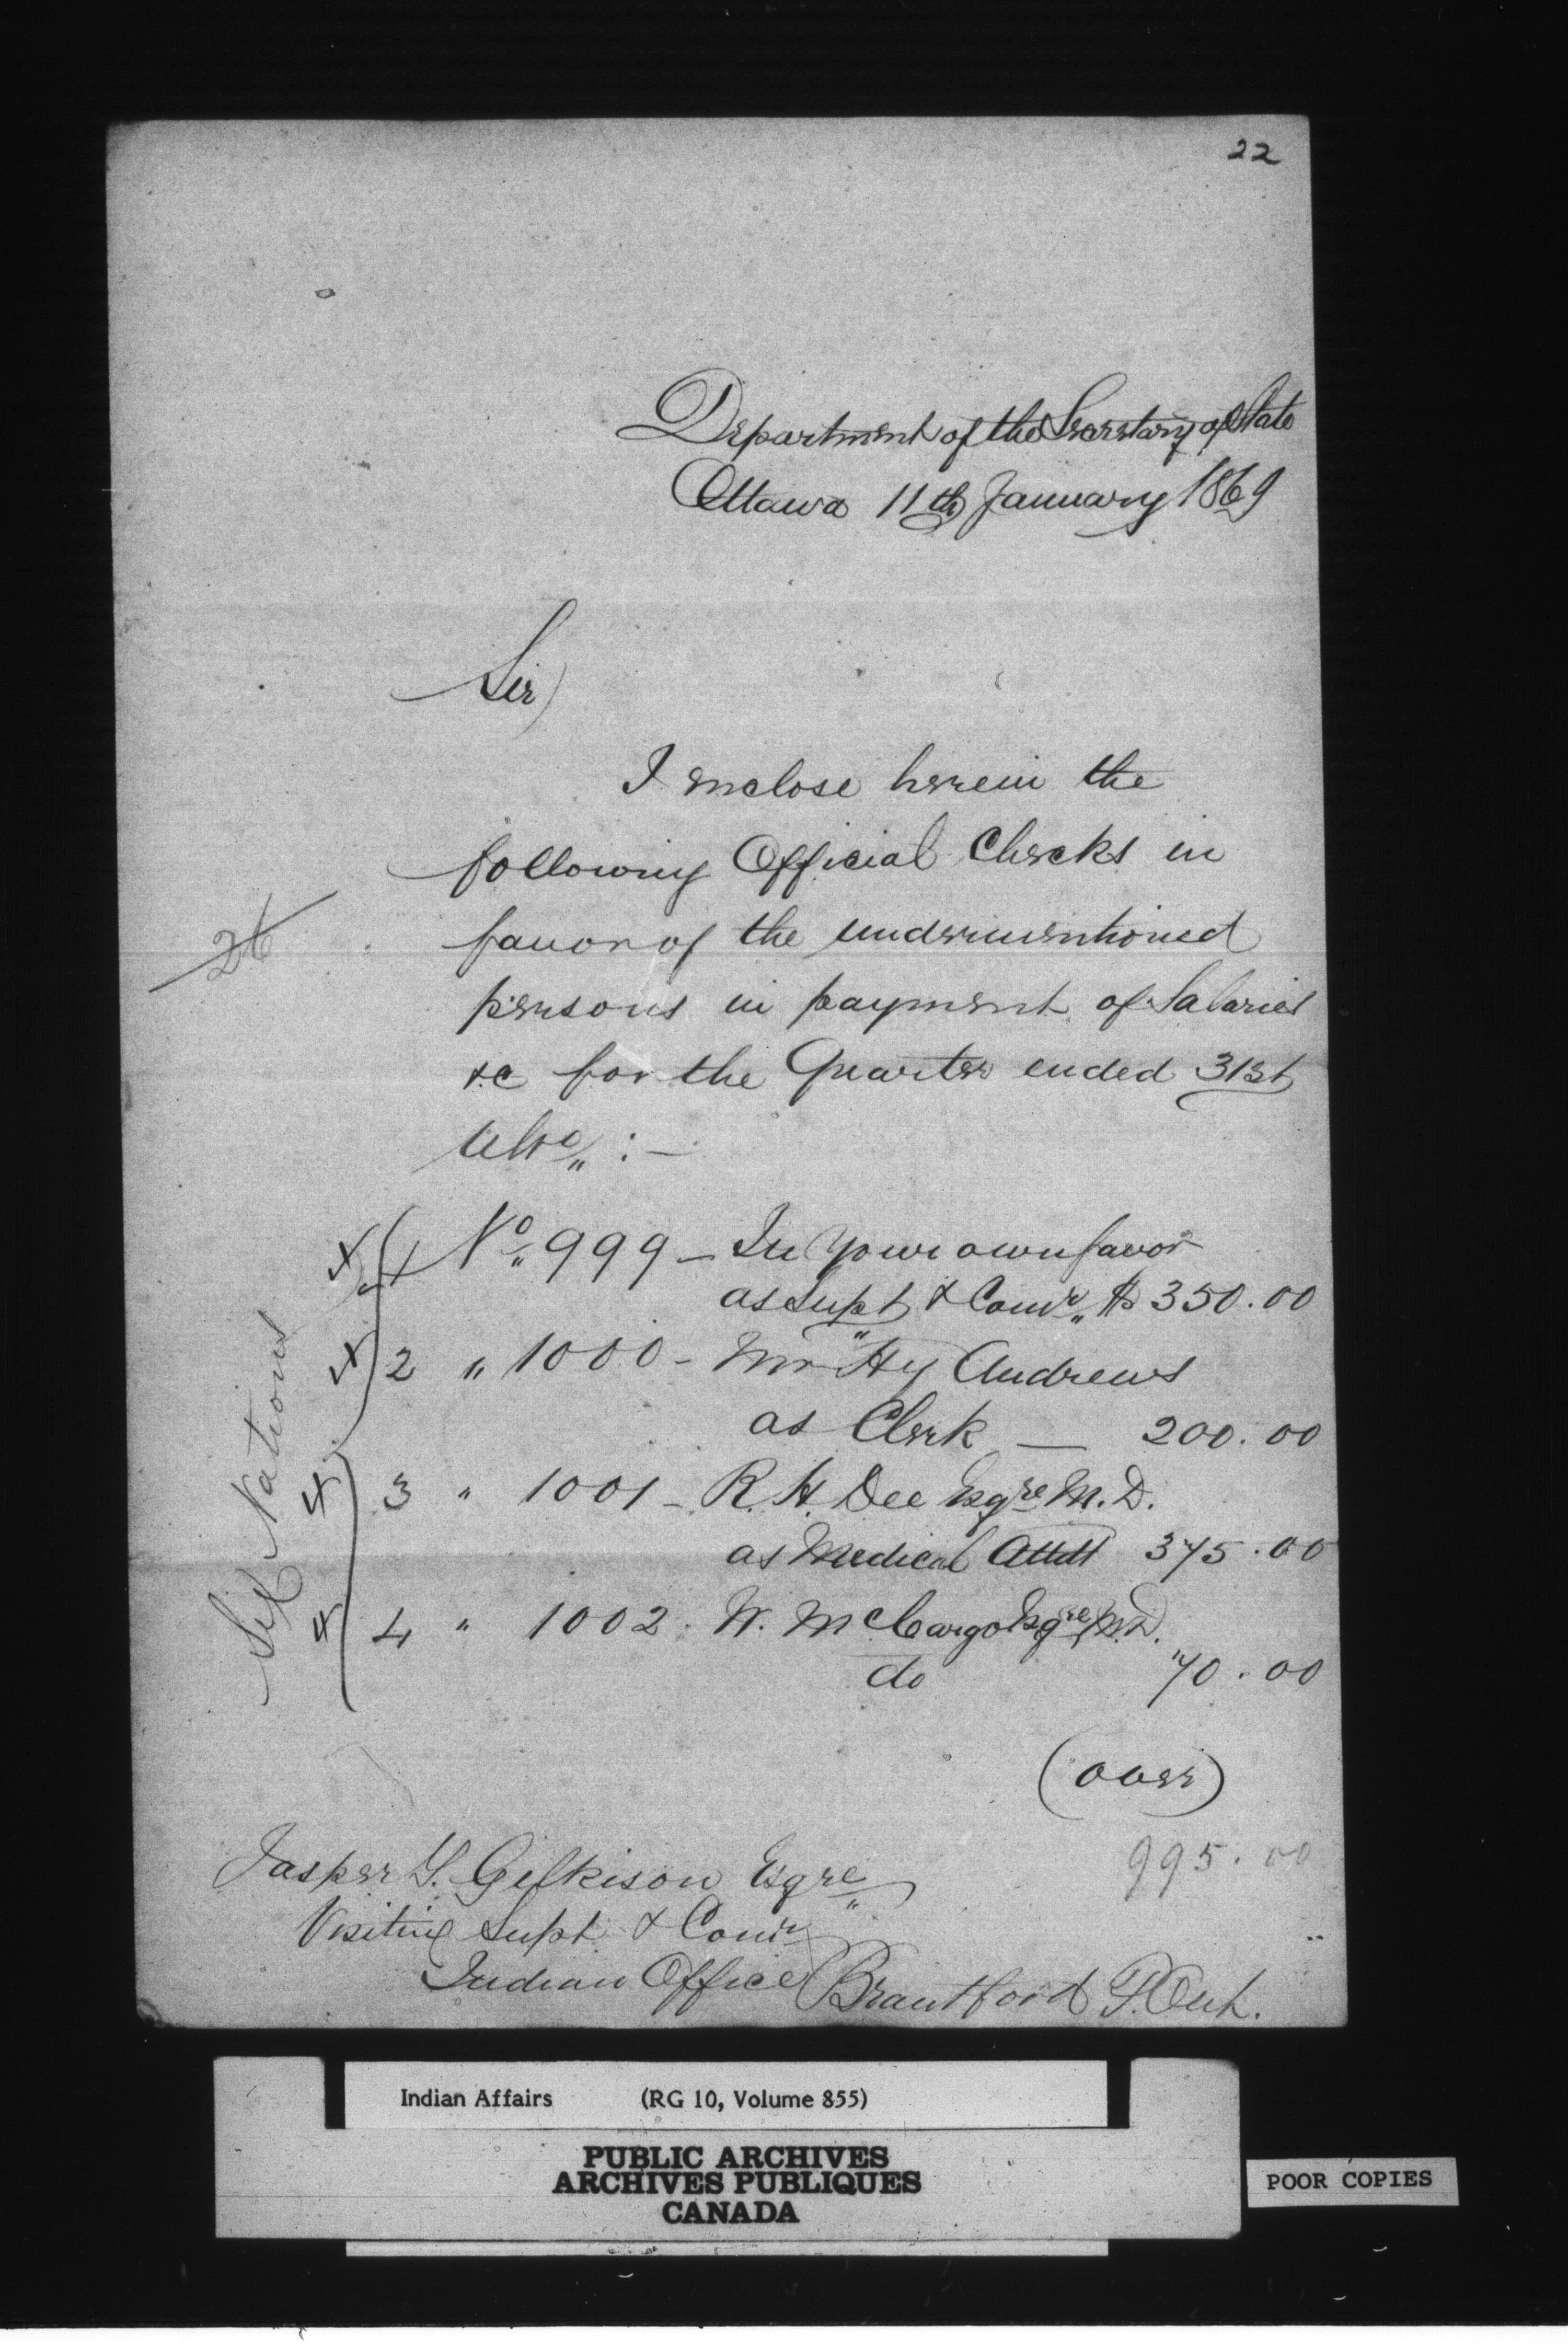 22
Department of the Secretary of State
Ottawa 11th January 1869
Sir
I enclose herein the
following Official Checks in
26
favor of the undermentioned
persons in payment of Salaries
&c for the Quarter ended 31st
Ulto :—
Six Nations
1 No 999 – In Your own favor
as Supt & Comr $350.00
2 " 1000 – Mr Hy Andrews
as Clerk — 200.00
3 " 1001 – R. H. Dee Esqre M.D.
as Medical Attdt 375.00
4 " 1002 . W. McCargo Esqre M.D.
do 70.00
(over)
995.00
Jasper T. Gilkison Esqre
Visiting Supt & Comr
Indian Office Brantford P. Ont.
Indian Affairs (RG 10, Volume 855)
PUBLIC ARCHIVES
ARCHIVES PUBLIQUES
CANADA
POOR COPIES